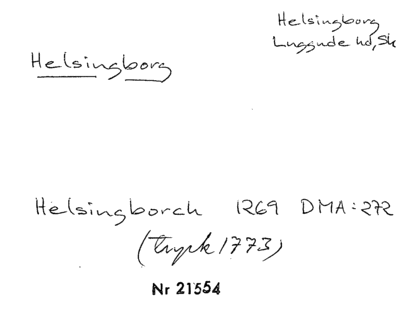 Helsingborg
Luggude hd, Sk
Helsingborg
Helsingborch 1269 DMA:272
(tryck 1773)
Nr 21554